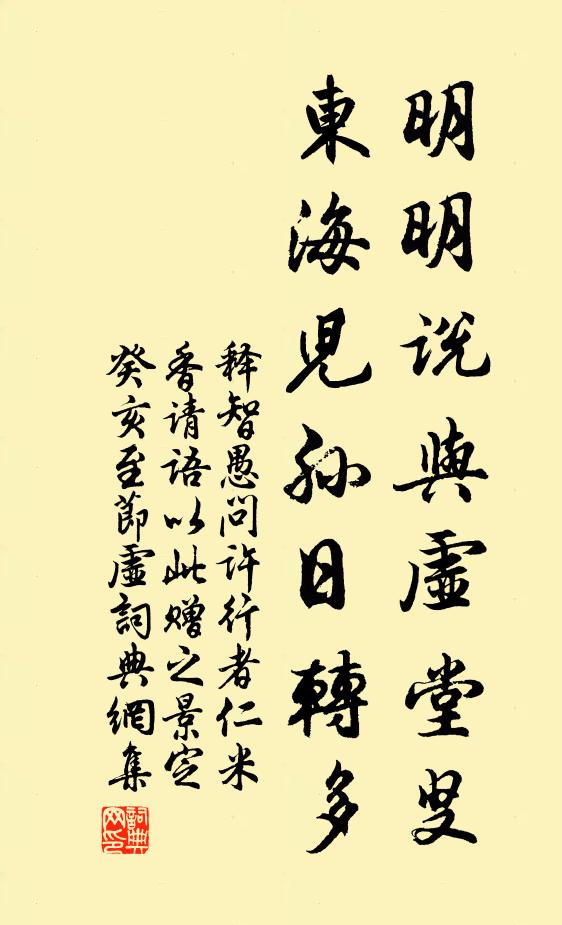 明明説與虛堂叟
東海兒孫日轉多
释智愚問許行者仁米
香請語以此贈之景定
癸亥至節虛詞典網集
詞典
网印